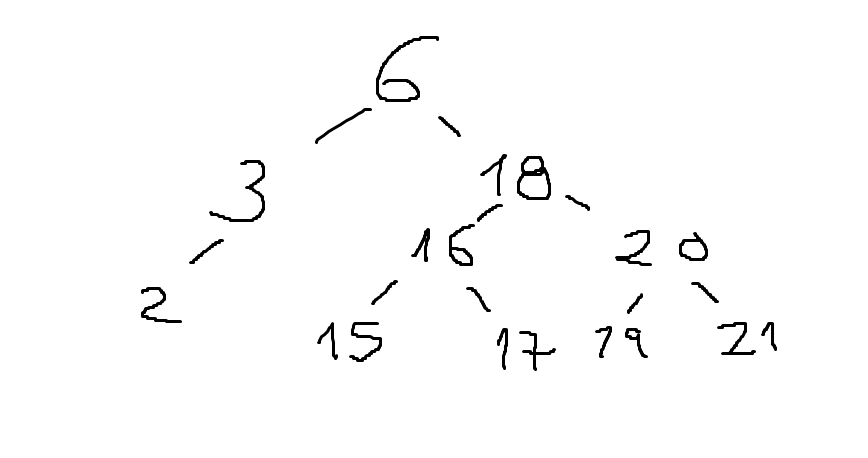 6
3 18
16 20
2 15 17 19 21